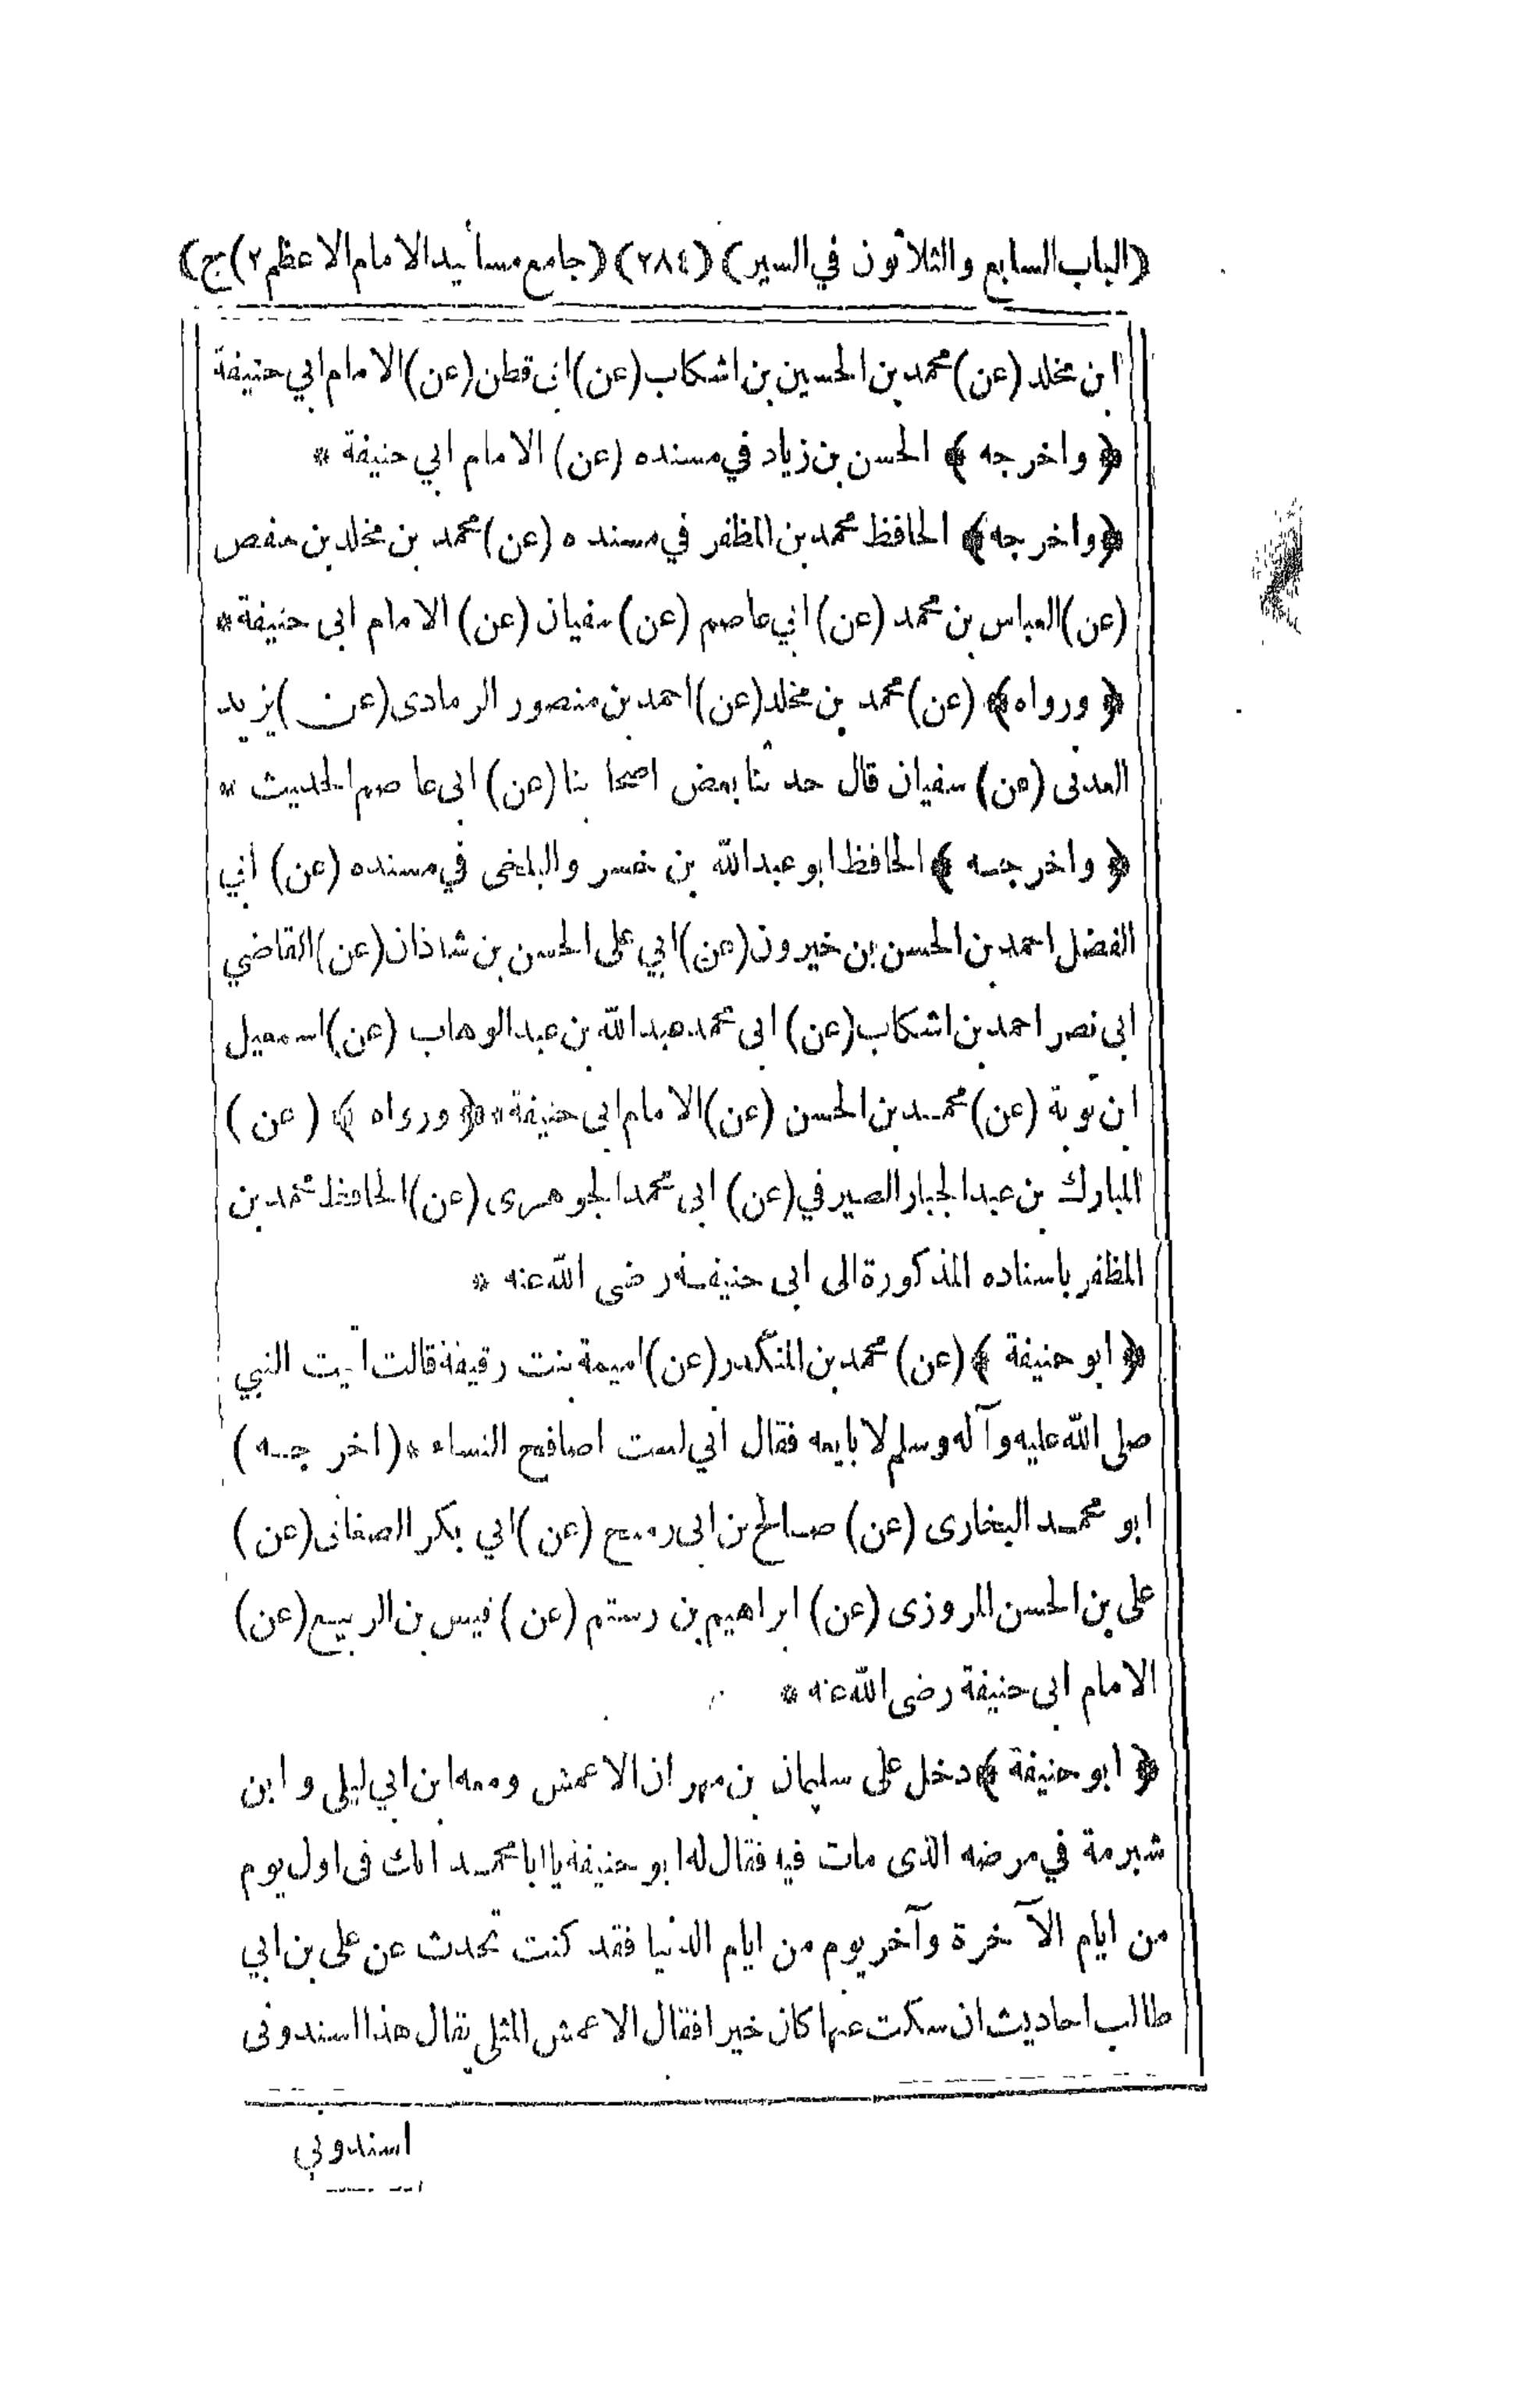 (الباب السابع والثلاثون في السير) (٢٨٤) (جامع مسانيد الامام الاعظم ٢)ج)
ابن مخلد (عن) محمد بن الحسين بن اشكاب (عن) ابى قطن (عن) الامام ابي حنيفة
﴿ واخرجه ﴾ الحسن بن زياد في مسنده (عن) الامام ابي حنيفة *
﴿ واخرجه ﴾ الحافظ محمد بن المظفر في مسنده (عن) محمد بن مخلد بن حفص
(عن) العباس بن محمد (عن) ابي عاصم (عن) سفيان (عن) الامام ابى حنيفة *
﴿ ورواه ﴾ (عن) محمد بن مخلد (عن) احمد بن منصور الرمادى (عن) يزيد
العدنى (عن) سفيان قال حدثنا بعض اصحابنا (عن) ابى عاصم الحديث *
﴿ واخرجه ﴾ الحافظ ابو عبد الله بن خسرو البلخى في مسنده (عن) ابي
الفضل احمد بن الحسن بن خيرون (عن) ابي على الحسن بن شاذان (عن) القاضي
ابى نصر احمد بن اشكاب (عن) ابى محمد عبد الله بن عبد الوهاب (عن) اسمعيل
ابن توبة (عن) محمد بن الحسن (عن) الامام ابى حنيفة * ﴿ ورواه ﴾ (عن)
المبارك بن عبد الجبار الصيرفي (عن) ابى محمد الجوهرى (عن) الحافظ محمد بن
المظفر باسناده المذكورة الى ابى حنيفة رضى الله عنه *
﴿ ابو حنيفة ﴾ (عن) محمد بن المنكدر (عن) اميمة بنت رقيقة قالت اتيت النبي
صلى الله عليه وآله وسلم لابايعه فقال اني لست اصافح النساء * (اخرجه)
ابو محمد البخارى (عن) صالح بن ابى رميح (عن) ابي بكر الصغانى (عن)
على بن الحسن المروزى (عن) ابراهيم بن رستم (عن) قيس بن الربيع (عن)
الامام ابى حنيفة رضى الله عنه *
﴿ ابو حنيفة ﴾ دخل على سليمان بن مهران الاعمش ومعه ابن ابي ليلى وابن
شبرمة في مرضه الذى مات فيه فقال له ابو حنيفة يا ابا محمد انك فى اول يوم
من ايام الآخرة وآخر يوم من ايام الدنيا فقد كنت تحدث عن على بن ابي
طالب احاديث ان سكت عنها كان خيرا فقال الاعمش المثلى يقال هذا اسندونى
اسندوني